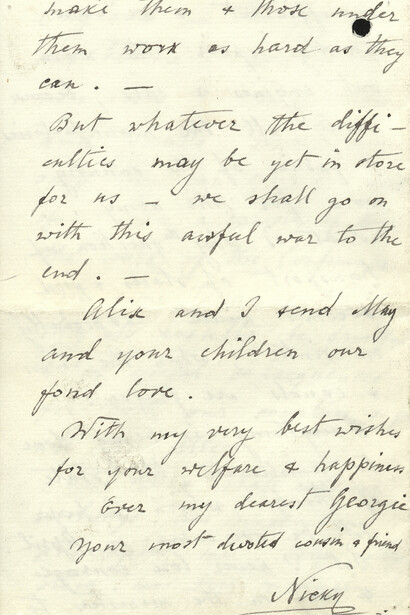 make them & those under
them work as hard as they
can. —
But whatever the diffi-
culties may be yet in store
for us — we shall go on
with this awful war to the
end. —
Alix and I send May
and your children our
fond love.
With my very best wishes
for your welfare & happiness
ever my dearest Georgie
your most devoted cousin & friend
Nicky